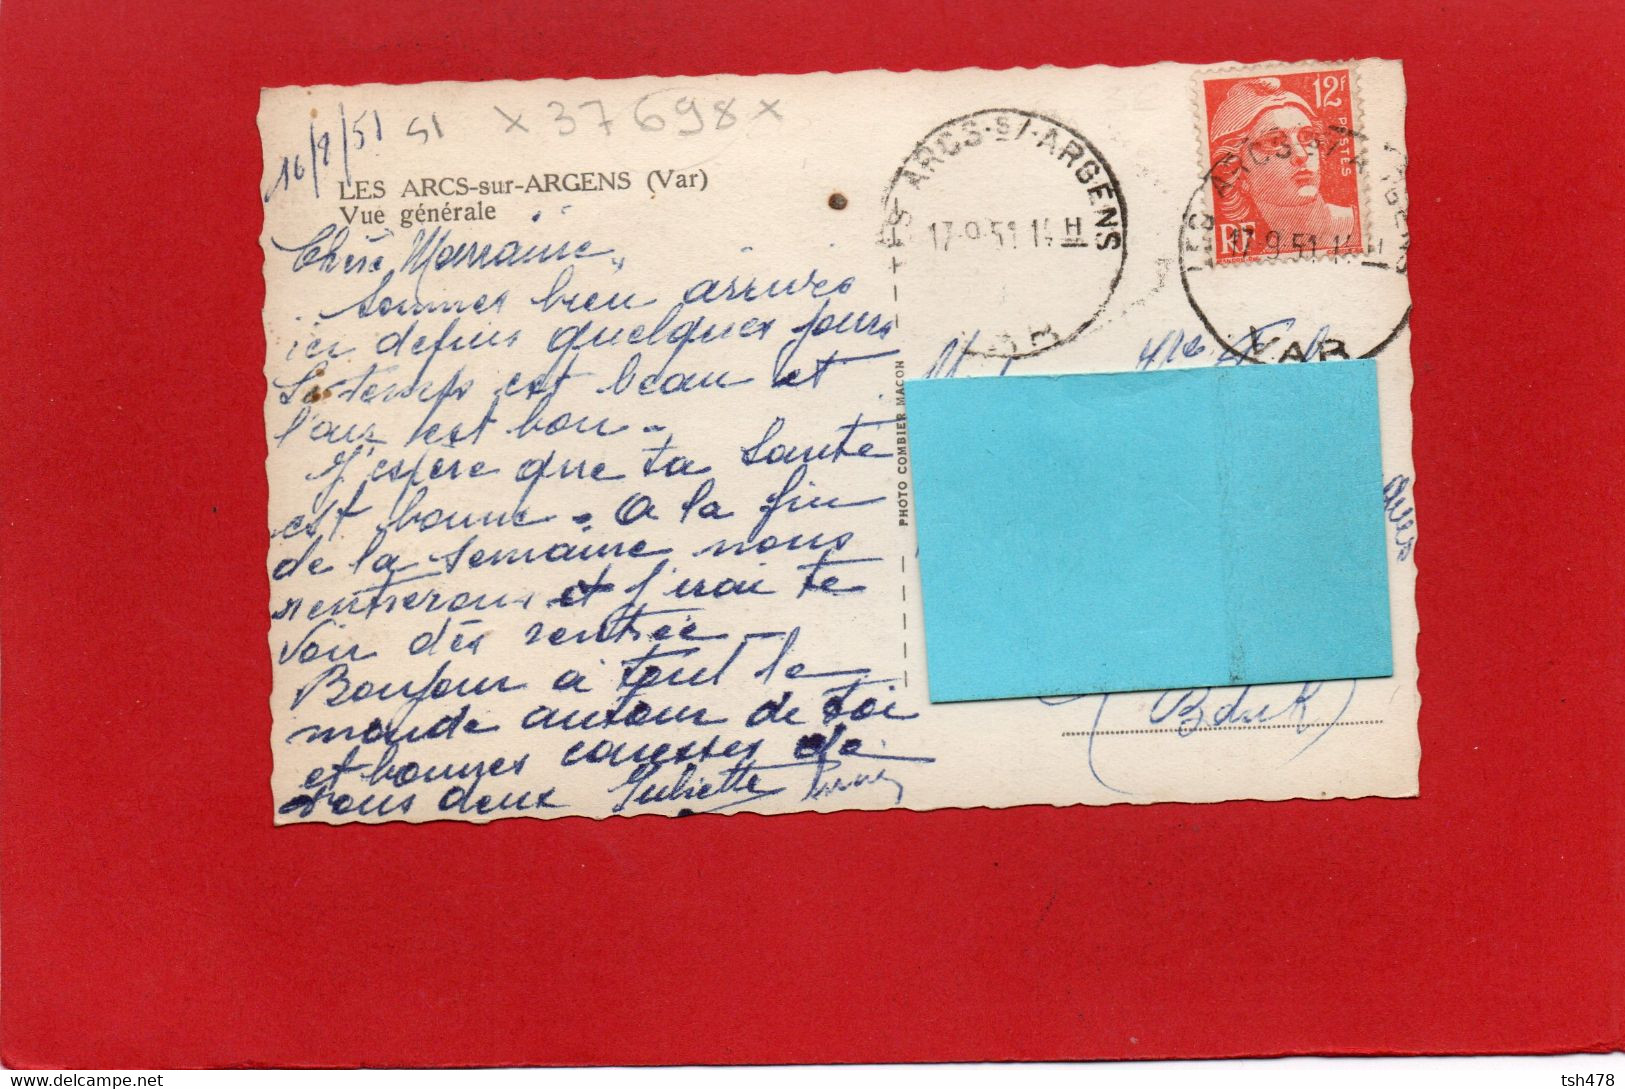 16/9/51 51 x 37698 x
LES ARCS-sur-ARGENS (Var)
Vue générale
Chère Marraine,
Sommes bien arrivés
ici depuis quelques jours
Le temps est beau et
l'air est bon -
J'espère que ta santé
est bonne - A la fin
de la semaine nous
rentrerons et j'irai te
voir dès rentrée -
Bonjour à tout le
monde autour de toi
et bonnes caresses de
nous deux Juliette
PHOTO COMBIER MACON
LES ARCS-S/-ARGENS
17-9-51 14H
VAR
12F
POSTES
RF
LES ARCS-S/-ARGENS
17-9-51 14H
VAR
tsh478